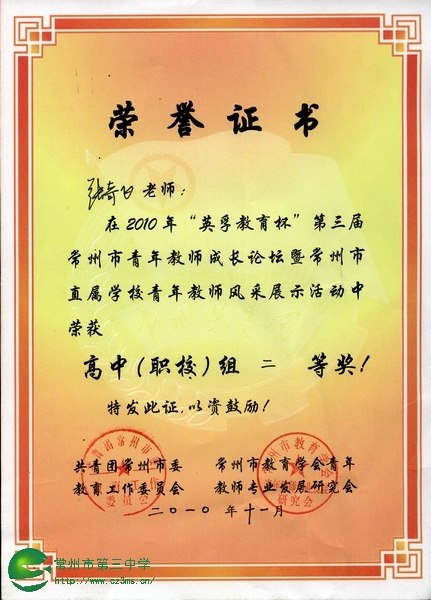 荣誉证书
老师：
在2010年“英孚教育杯”第三届
常州市青年教师成长论坛暨常州市
直属学校青年教师风采展示活动中
荣获
高中（职校）组 二 等奖！
特发此证，以资鼓励！
共青团常州市委 常州市教育学会青年
教育工作委员会 教师专业发展研究会
二〇一〇年十一月
常州市第三中学
http://www.cz3ms.cn/